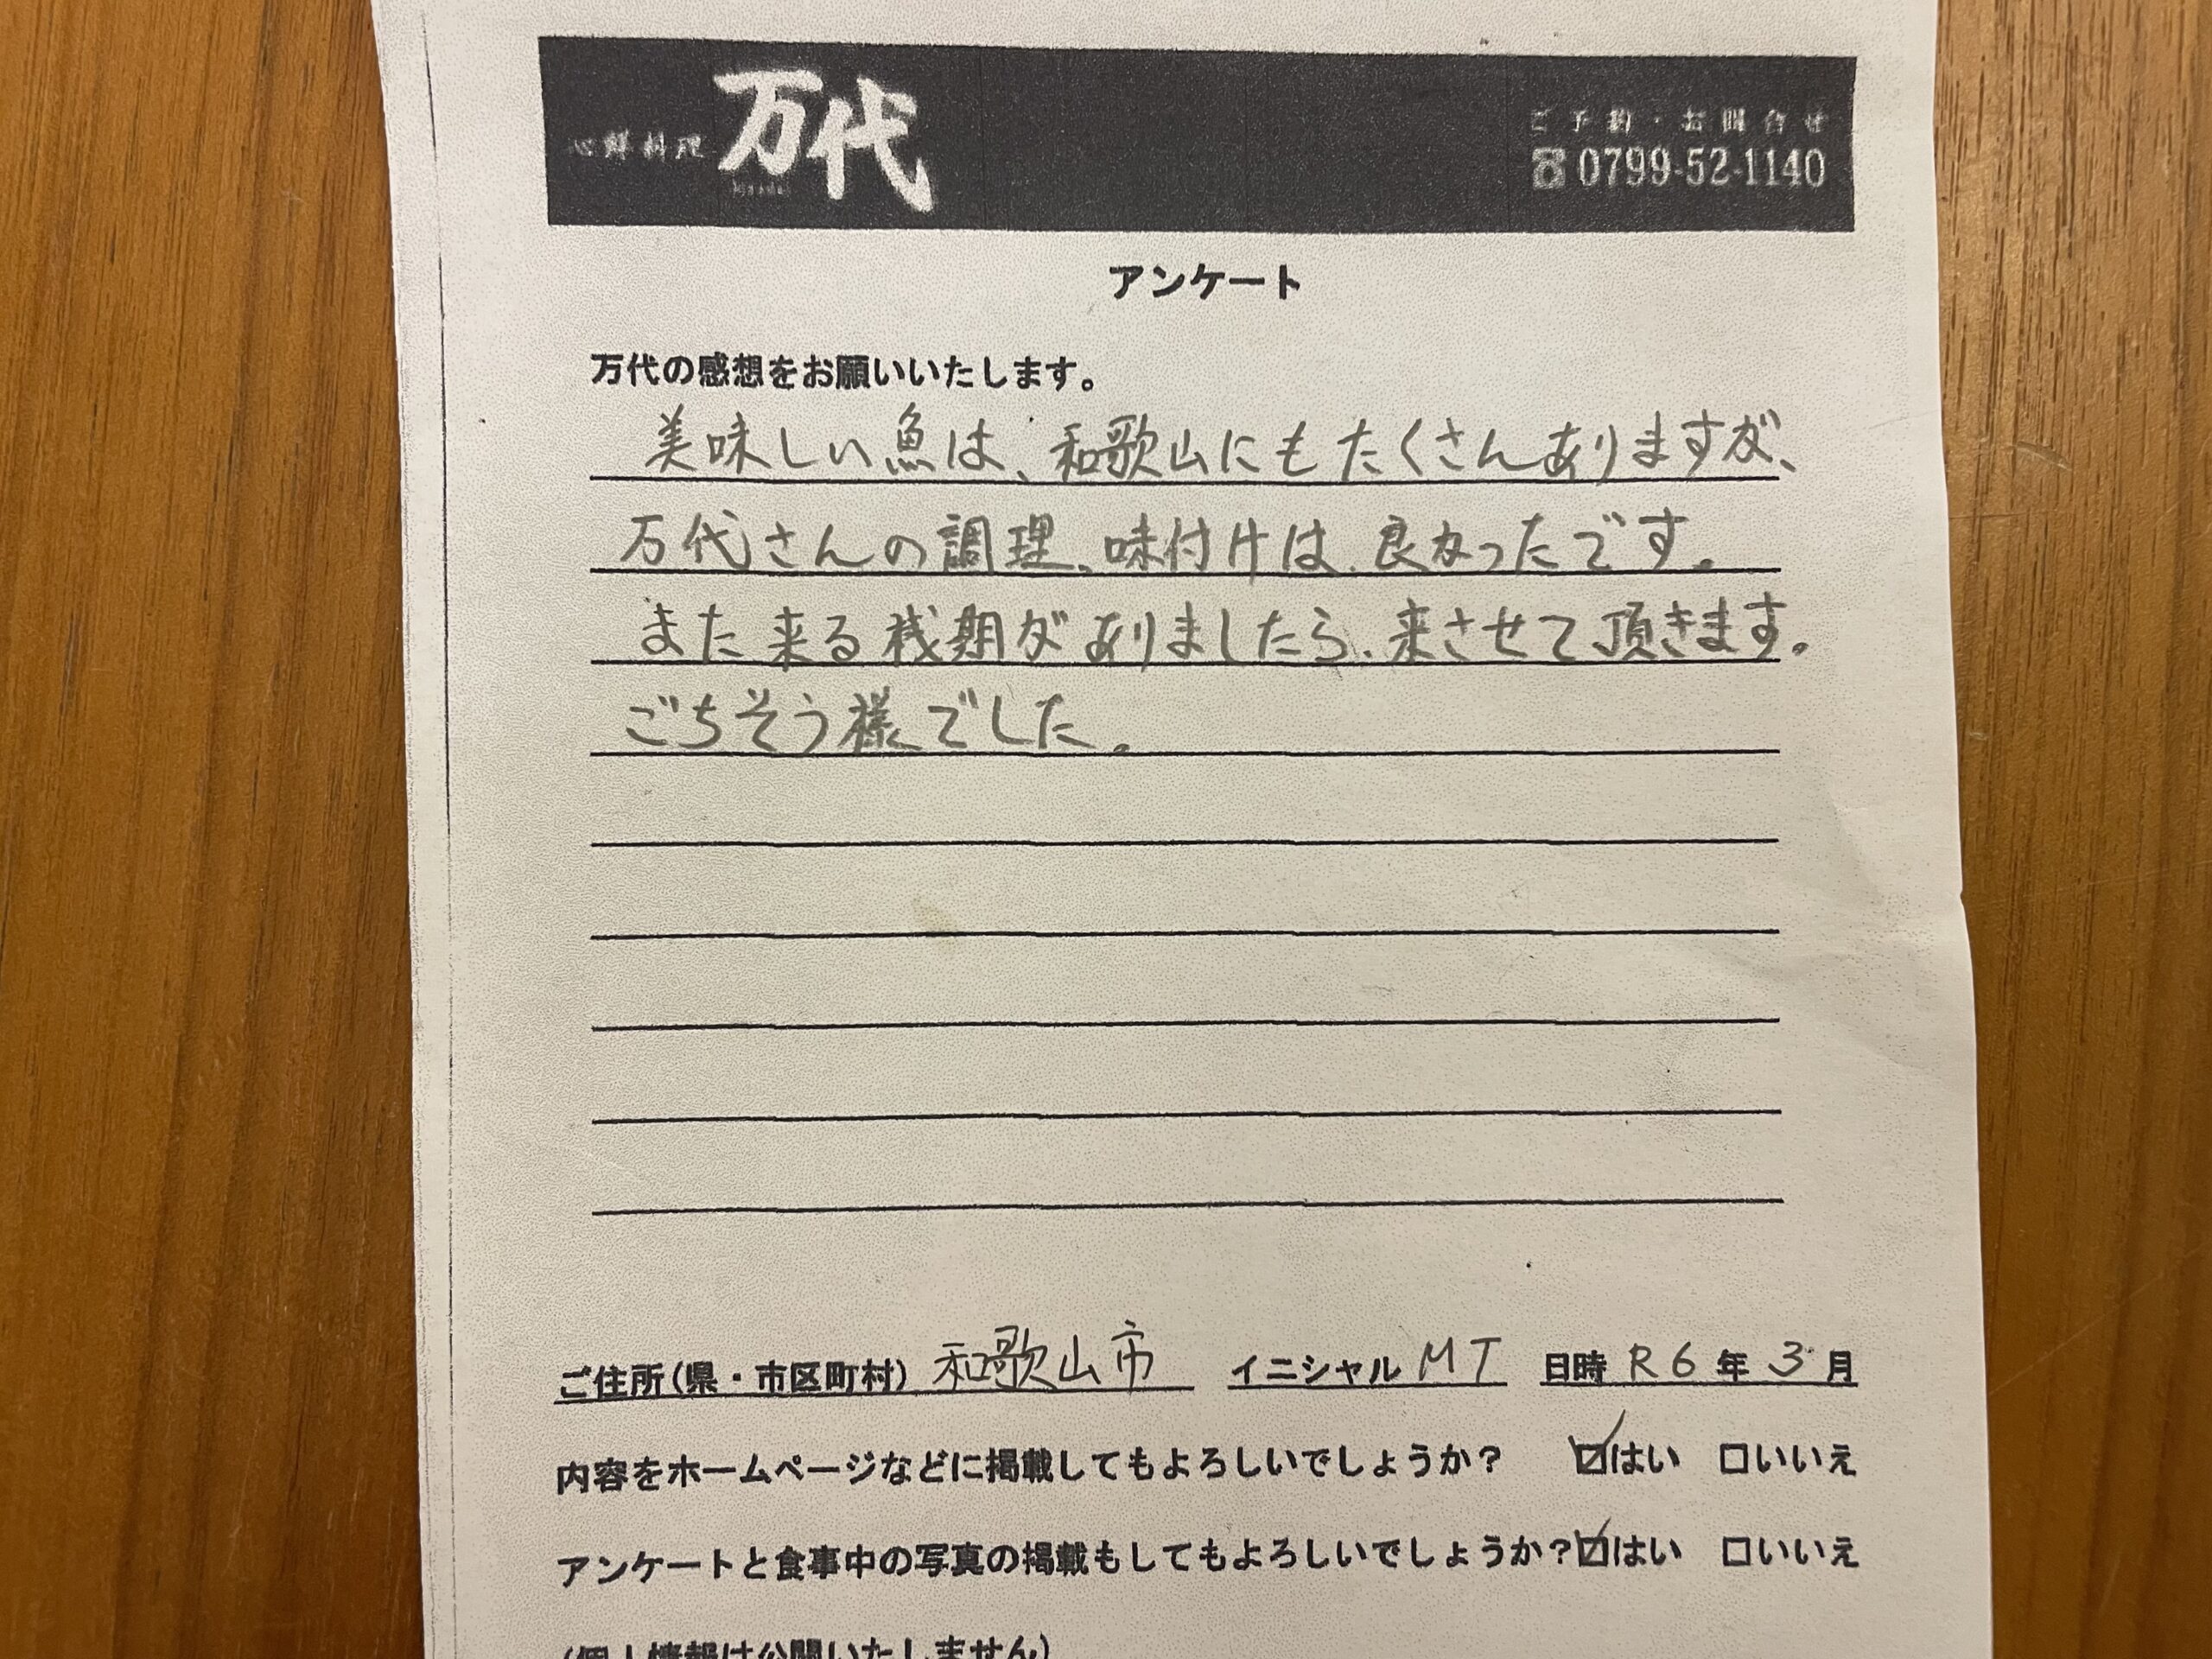 心鮮料理 万代
ご予約・お問合せ
☎0799-52-1140
アンケート
万代の感想をお願いいたします。
美味しい魚は、和歌山にもたくさんありますが、
万代さんの調理、味付けは、良かったです。
また来る機期がありましたら、来させて頂きます。
ごちそう様でした。
ご住所(県・市区町村) 和歌山市 イニシャル MT 日時 R6年3月
内容をホームページなどに掲載してもよろしいでしょうか? ☑はい □いいえ
アンケートと食事中の写真の掲載もしてもよろしいでしょうか?☑はい □いいえ
(個人情報は公開いたしません)